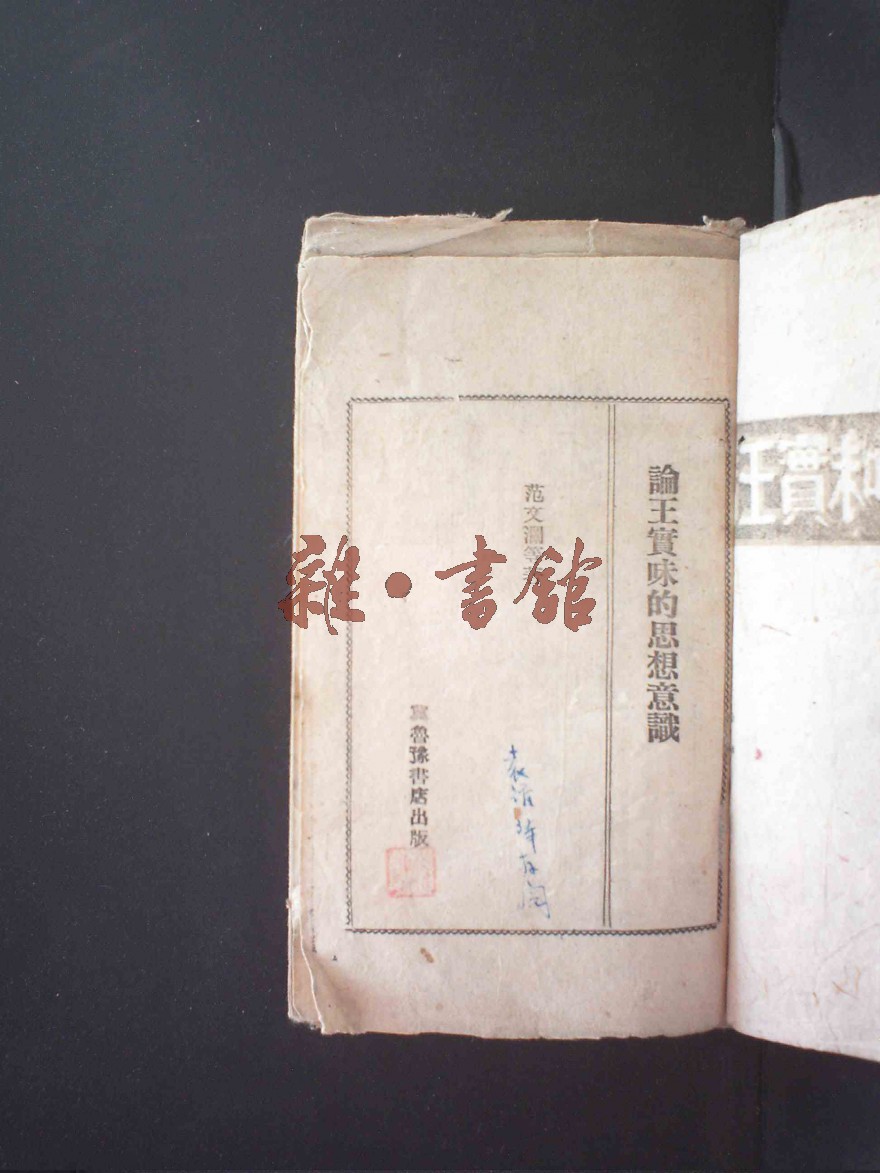 論王實味的思想意識
范文瀾等
冀魯豫書店出版
雜·書館
王實味